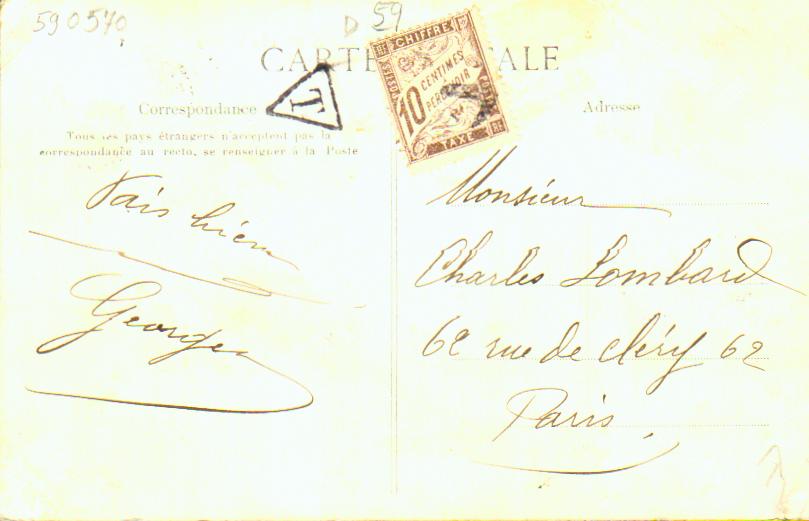 590570
D 59
CARTE POSTALE
T
CHIFFRE
10 CENTIMES
A PERCEVOIR
POSTES
TAXE
Correspondance
Tous les pays étrangers n'acceptent pas la
correspondance au recto, se renseigner à la Poste
Vais bien
Georges
Adresse
Monsieur
Charles Lombard
62 rue de cléry 62
Paris